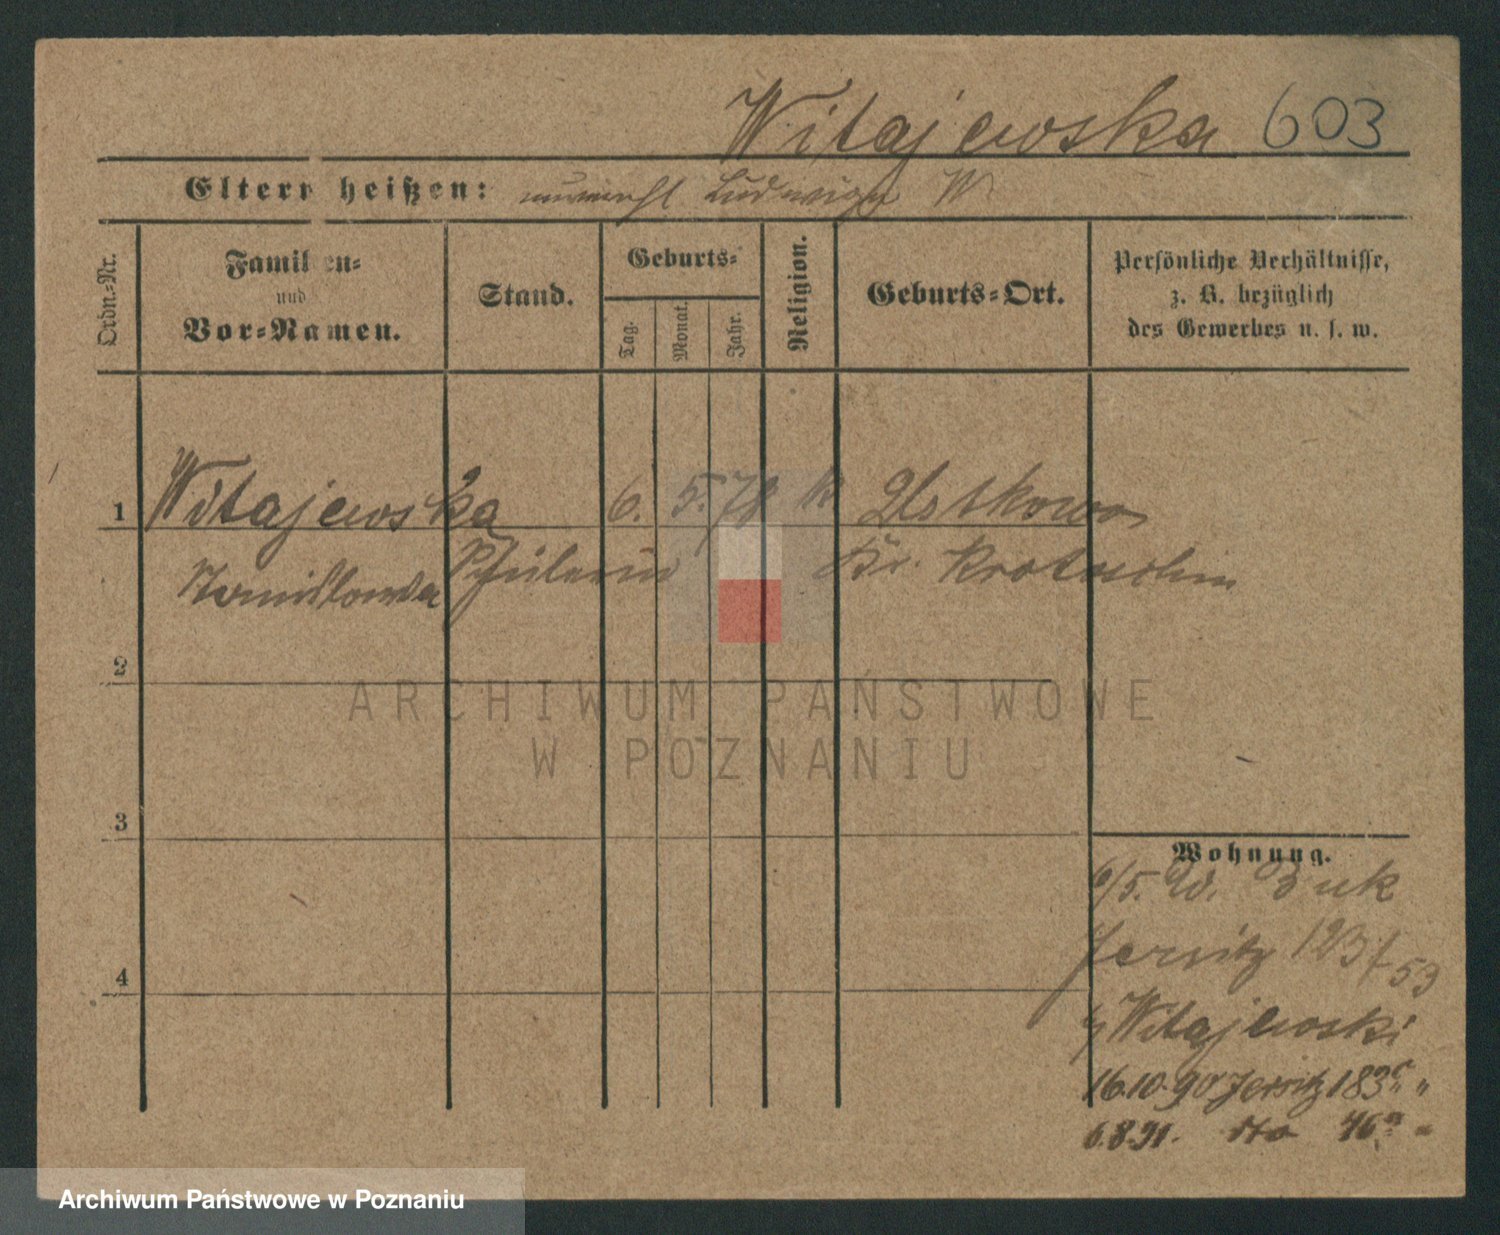 Witajewska 603
Eltern heißen: Ludwiga W
Ordn.-Nr.
Familien-
und
Vor-Namen.
Stand.
Geburts-
Tag.
Monat.
Jahr.
Religion.
Geburts-Ort.
Persönliche Verhältnisse,
z. B. bezüglich
des Gewerbes u. s. w.
1 Witajewska 6. 5. 78 k.
Kr. Krotoschin
2
ARCHIWUM PAŃSTWOWE
W POZNANIU
3
4
Wohnung.
6/5. Buk
Jersitz 123/53
Witajewski
16.10.90 Jersitz 183
6.8.91. dto 46a
Archiwum Państwowe w Poznaniu